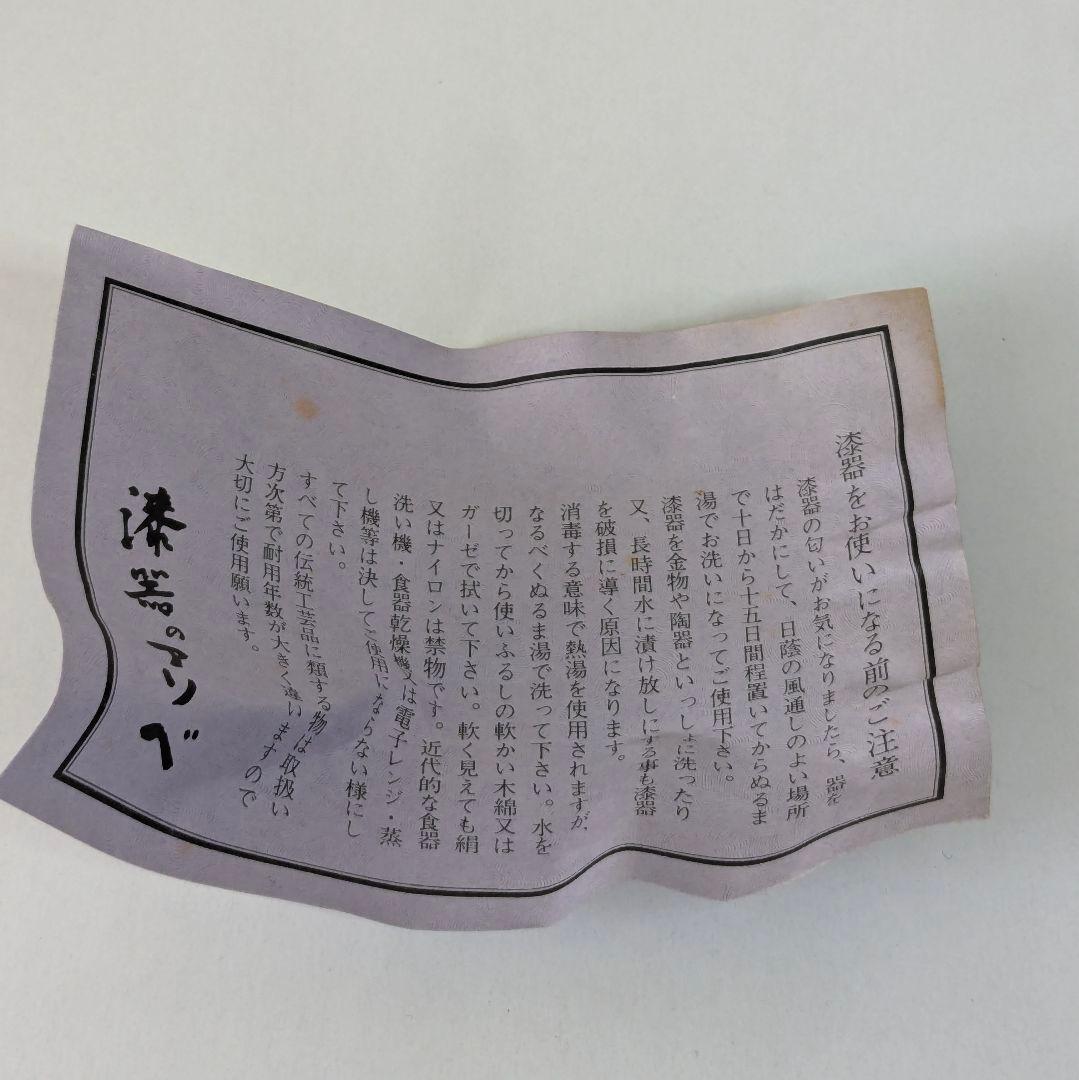 漆器をお使いになる前のご注意
漆器の匂いがお気になりましたら、器を
はだかにして、日蔭の風通しのよい場所
で十日から十五日間程置いてからぬるま
湯でお洗いになってご使用下さい。
漆器を金物や陶器といっしょに洗ったり
又、長時間水に漬け放しにする事も漆器
を破損に導く原因になります。
消毒する意味で熱湯を使用されますが、
なるべくぬるま湯で洗って下さい。水を
切ってから使いふるしの軟かい木綿又は
ガーゼで拭いて下さい。軟く見えても絹
又はナイロンは禁物です。近代的な食器
洗い機・食器乾燥機又は電子レンジ・蒸
し機等は決してご使用にならない様にし
て下さい。
すべての伝統工芸品に類する物は取扱い
方次第で耐用年数が大きく違いますので
大切にご使用願います。
漆器のマソベ